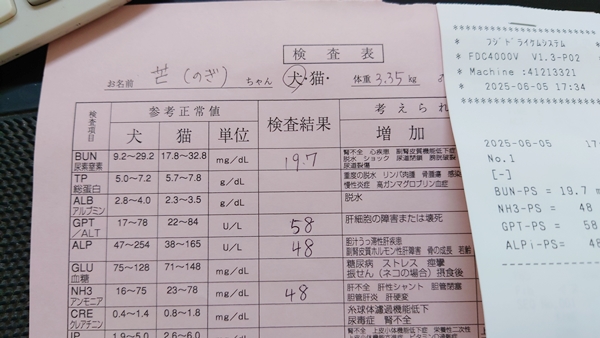 検査表
お名前 芒(のぎ) ちゃん 犬・猫・ 体重 3.35 kg
検査項目 参考正常値 検査結果 考えられ
犬 猫 単位 増加
BUN 尿素窒素 9.2~29.2 17.8~32.8 mg/dL 19.7 腎不全 心疾患 副腎皮質機能低下症
脱水 ショック 尿道閉塞 膀胱破裂
尿道裂傷
TP 総蛋白 5.0~7.2 5.7~7.8 g/dL 重度の脱水 リンパ肉腫 骨髄腫 感染
慢性炎症 高ガンマグロブリン血症
ALB アルブミン 2.8~4.0 2.3~3.5 g/dL 脱水
GPT /ALT 17~78 22~84 U/L 58 肝細胞の障害または壊死
ALP 47~254 38~165 U/L 48 胆汁うっ滞性肝疾患
副腎皮質ホルモン性肝障害 骨の成長 若齢
GLU 血糖 75~128 71~148 mg/dL 糖尿病 ストレス 痙攣
振せん(ネコの場合)摂食後
NH3 アンモニア 16~75 23~78 mg/dL 48 肝不全 肝性シャント 胆管閉塞
胆管肝炎 肝硬変
CRE クレアチニン 0.4~1.4 0.8~1.8 mg/dL 糸球体濾過機能低下
尿毒症 腎不全
IP 1.9~5.0 2.6~6.0
* * * * * * * * * *
* フジドライケムシステム
* FDC4000V V1.3-P02 *
* Machine :41213321
* 2025-06-05 17:34
* * * * * * * * * *
2025-06-05 17
No.1
[-]
BUN-PS = 19.7 m
NH3-PS = 48
GPT-PS = 58
ALPi-PS= 48